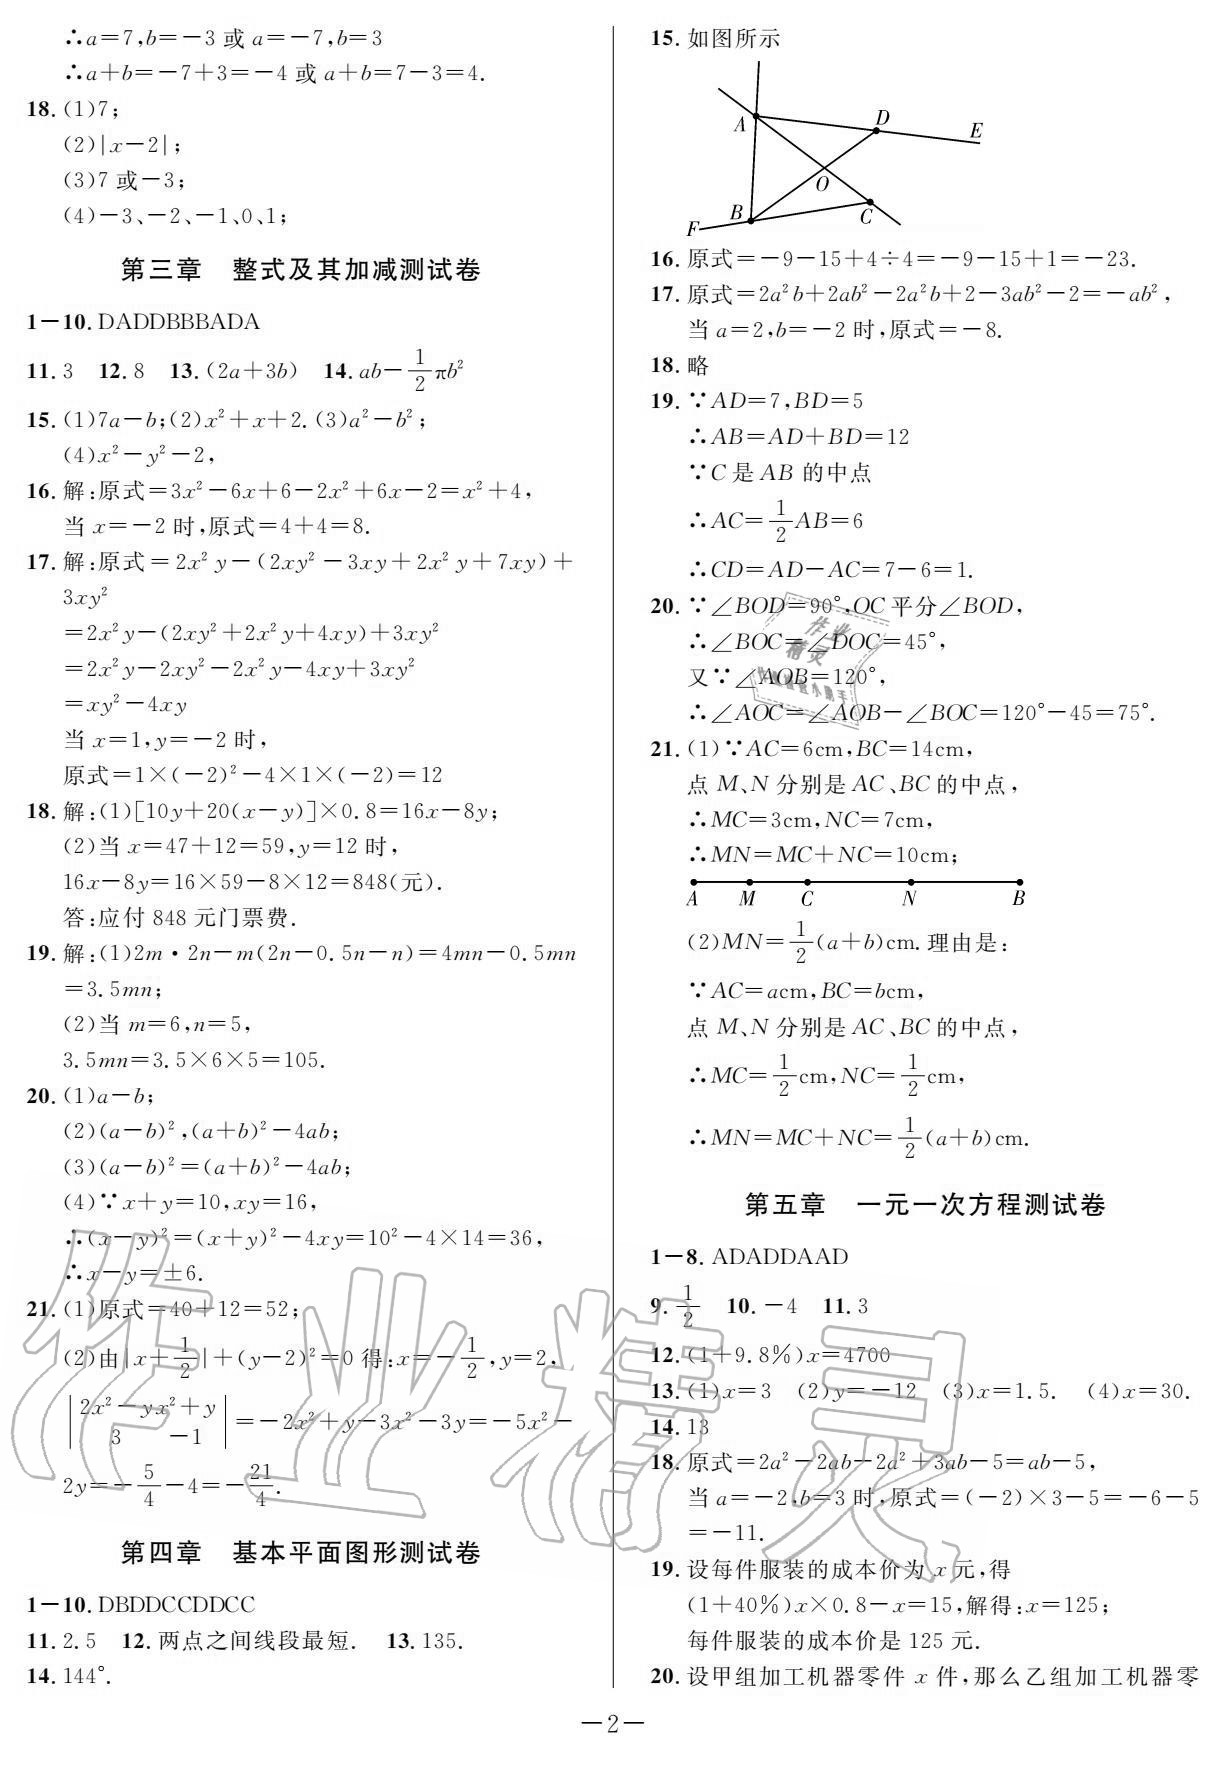 ∴a=7,b=-3 或 a=-7,b=3
∴a+b=-7+3=-4 或 a+b=7-3=4.
18.(1)7;
(2)|x-2|;
(3)7 或-3;
(4)-3、-2、-1、0、1;
第三章 整式及其加减测试卷
1-10. DADDBBBADA
11. 3 12. 8 13.(2a+3b) 14. ab-1/2πb²
15.(1)7a-b;(2)x²+x+2.(3)a²-b²;
(4)x²-y²-2,
16. 解:原式=3x²-6x+6-2x²+6x-2=x²+4,
当 x=-2 时,原式=4+4=8.
17. 解:原式=2x²y-(2xy²-3xy+2x²y+7xy)+
3xy²
=2x²y-(2xy²+2x²y+4xy)+3xy²
=2x²y-2xy²-2x²y-4xy+3xy²
=xy²-4xy
当 x=1,y=-2 时,
原式=1×(-2)²-4×1×(-2)=12
18. 解:(1)[10y+20(x-y)]×0.8=16x-8y;
(2)当 x=47+12=59,y=12 时,
16x-8y=16×59-8×12=848(元).
答:应付 848 元门票费.
19. 解:(1)2m·2n-m(2n-0.5n-n)=4mn-0.5mn
=3.5mn;
(2)当 m=6,n=5,
3.5mn=3.5×6×5=105.
20.(1)a-b;
(2)(a-b)²,(a+b)²-4ab;
(3)(a-b)²=(a+b)²-4ab;
(4)∵x+y=10,xy=16,
∴(x-y)²=(x+y)²-4xy=10²-4×14=36,
∴x-y=±6.
21.(1)原式=40+12=52;
(2)由|x+1/2|+(y-2)²=0 得:x=-1/2,y=2,
|2x²-y x²+y|
|3 -1| =-2x²+y-3x²-3y=-5x²-
2y=-5/4-4=-21/4.
第四章 基本平面图形测试卷
1-10. DBDDCCDDCC
11. 2.5 12. 两点之间线段最短. 13. 135.
14. 144°.
15. 如图所示
A D E
O
B C
F
16. 原式=-9-15+4÷4=-9-15+1=-23.
17. 原式=2a²b+2ab²-2a²b+2-3ab²-2=-ab²,
当 a=2,b=-2 时,原式=-8.
18. 略
19. ∵AD=7,BD=5
∴AB=AD+BD=12
∵C 是 AB 的中点
∴AC=1/2AB=6
∴CD=AD-AC=7-6=1.
20. ∵∠BOD=90°,OC 平分∠BOD,
∴∠BOC=∠DOC=45°,
又∵∠AOB=120°,
∴∠AOC=∠AOB-∠BOC=120°-45=75°.
21.(1)∵AC=6cm,BC=14cm,
点 M、N 分别是 AC、BC 的中点,
∴MC=3cm,NC=7cm,
∴MN=MC+NC=10cm;
A M C N B
(2)MN=1/2(a+b)cm. 理由是:
∵AC=acm,BC=bcm,
点 M、N 分别是 AC、BC 的中点,
∴MC=1/2cm,NC=1/2cm,
∴MN=MC+NC=1/2(a+b)cm.
第五章 一元一次方程测试卷
1-8. ADADDAAD
9. 1/2 10. -4 11. 3
12.(1+9.8%)x=4700
13.(1)x=3 (2)y=-12 (3)x=1.5. (4)x=30.
14. 13
18. 原式=2a²-2ab-2a²+3ab-5=ab-5,
当 a=-2,b=3 时,原式=(-2)×3-5=-6-5
=-11.
19. 设每件服装的成本价为 x 元,得
(1+40%)x×0.8-x=15,解得:x=125;
每件服装的成本价是 125 元.
20. 设甲组加工机器零件 x 件,那么乙组加工机器零
-2-
作业精灵
作业
精灵